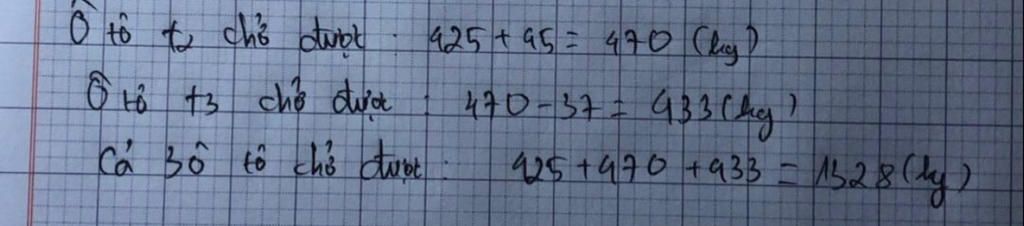 Ô tô t2 chở được : 425 + 45 = 470 (kg)
Ô tô t3 chở được : 470 - 37 = 433 (kg)
Cả 3 ô tô chở được : 425 + 470 + 433 = 1328 (kg)